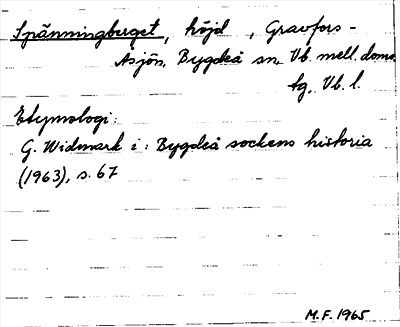 Spänningberget, höjd, Gravfors-
Åsjön, Bygdeå sn, Vb. mell. doms.
tg, Vb. l.
Etymologi:
G. Widmark i: Bygdeå sockens historia
(1963), s. 67
M.F. 1965